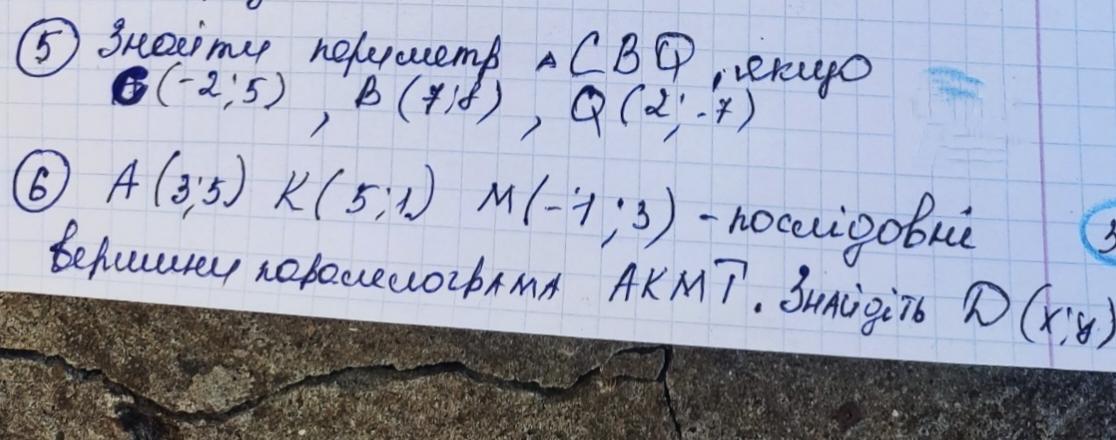 5 Знайти периметр △ CBQ, якщо
C(-2;5), B(7;8), Q(2;-7)
6 A(3;5) K(5;1) M(-1;3) - послідовні
вершини паралелограма AKMT. Знайдіть D(x;y)